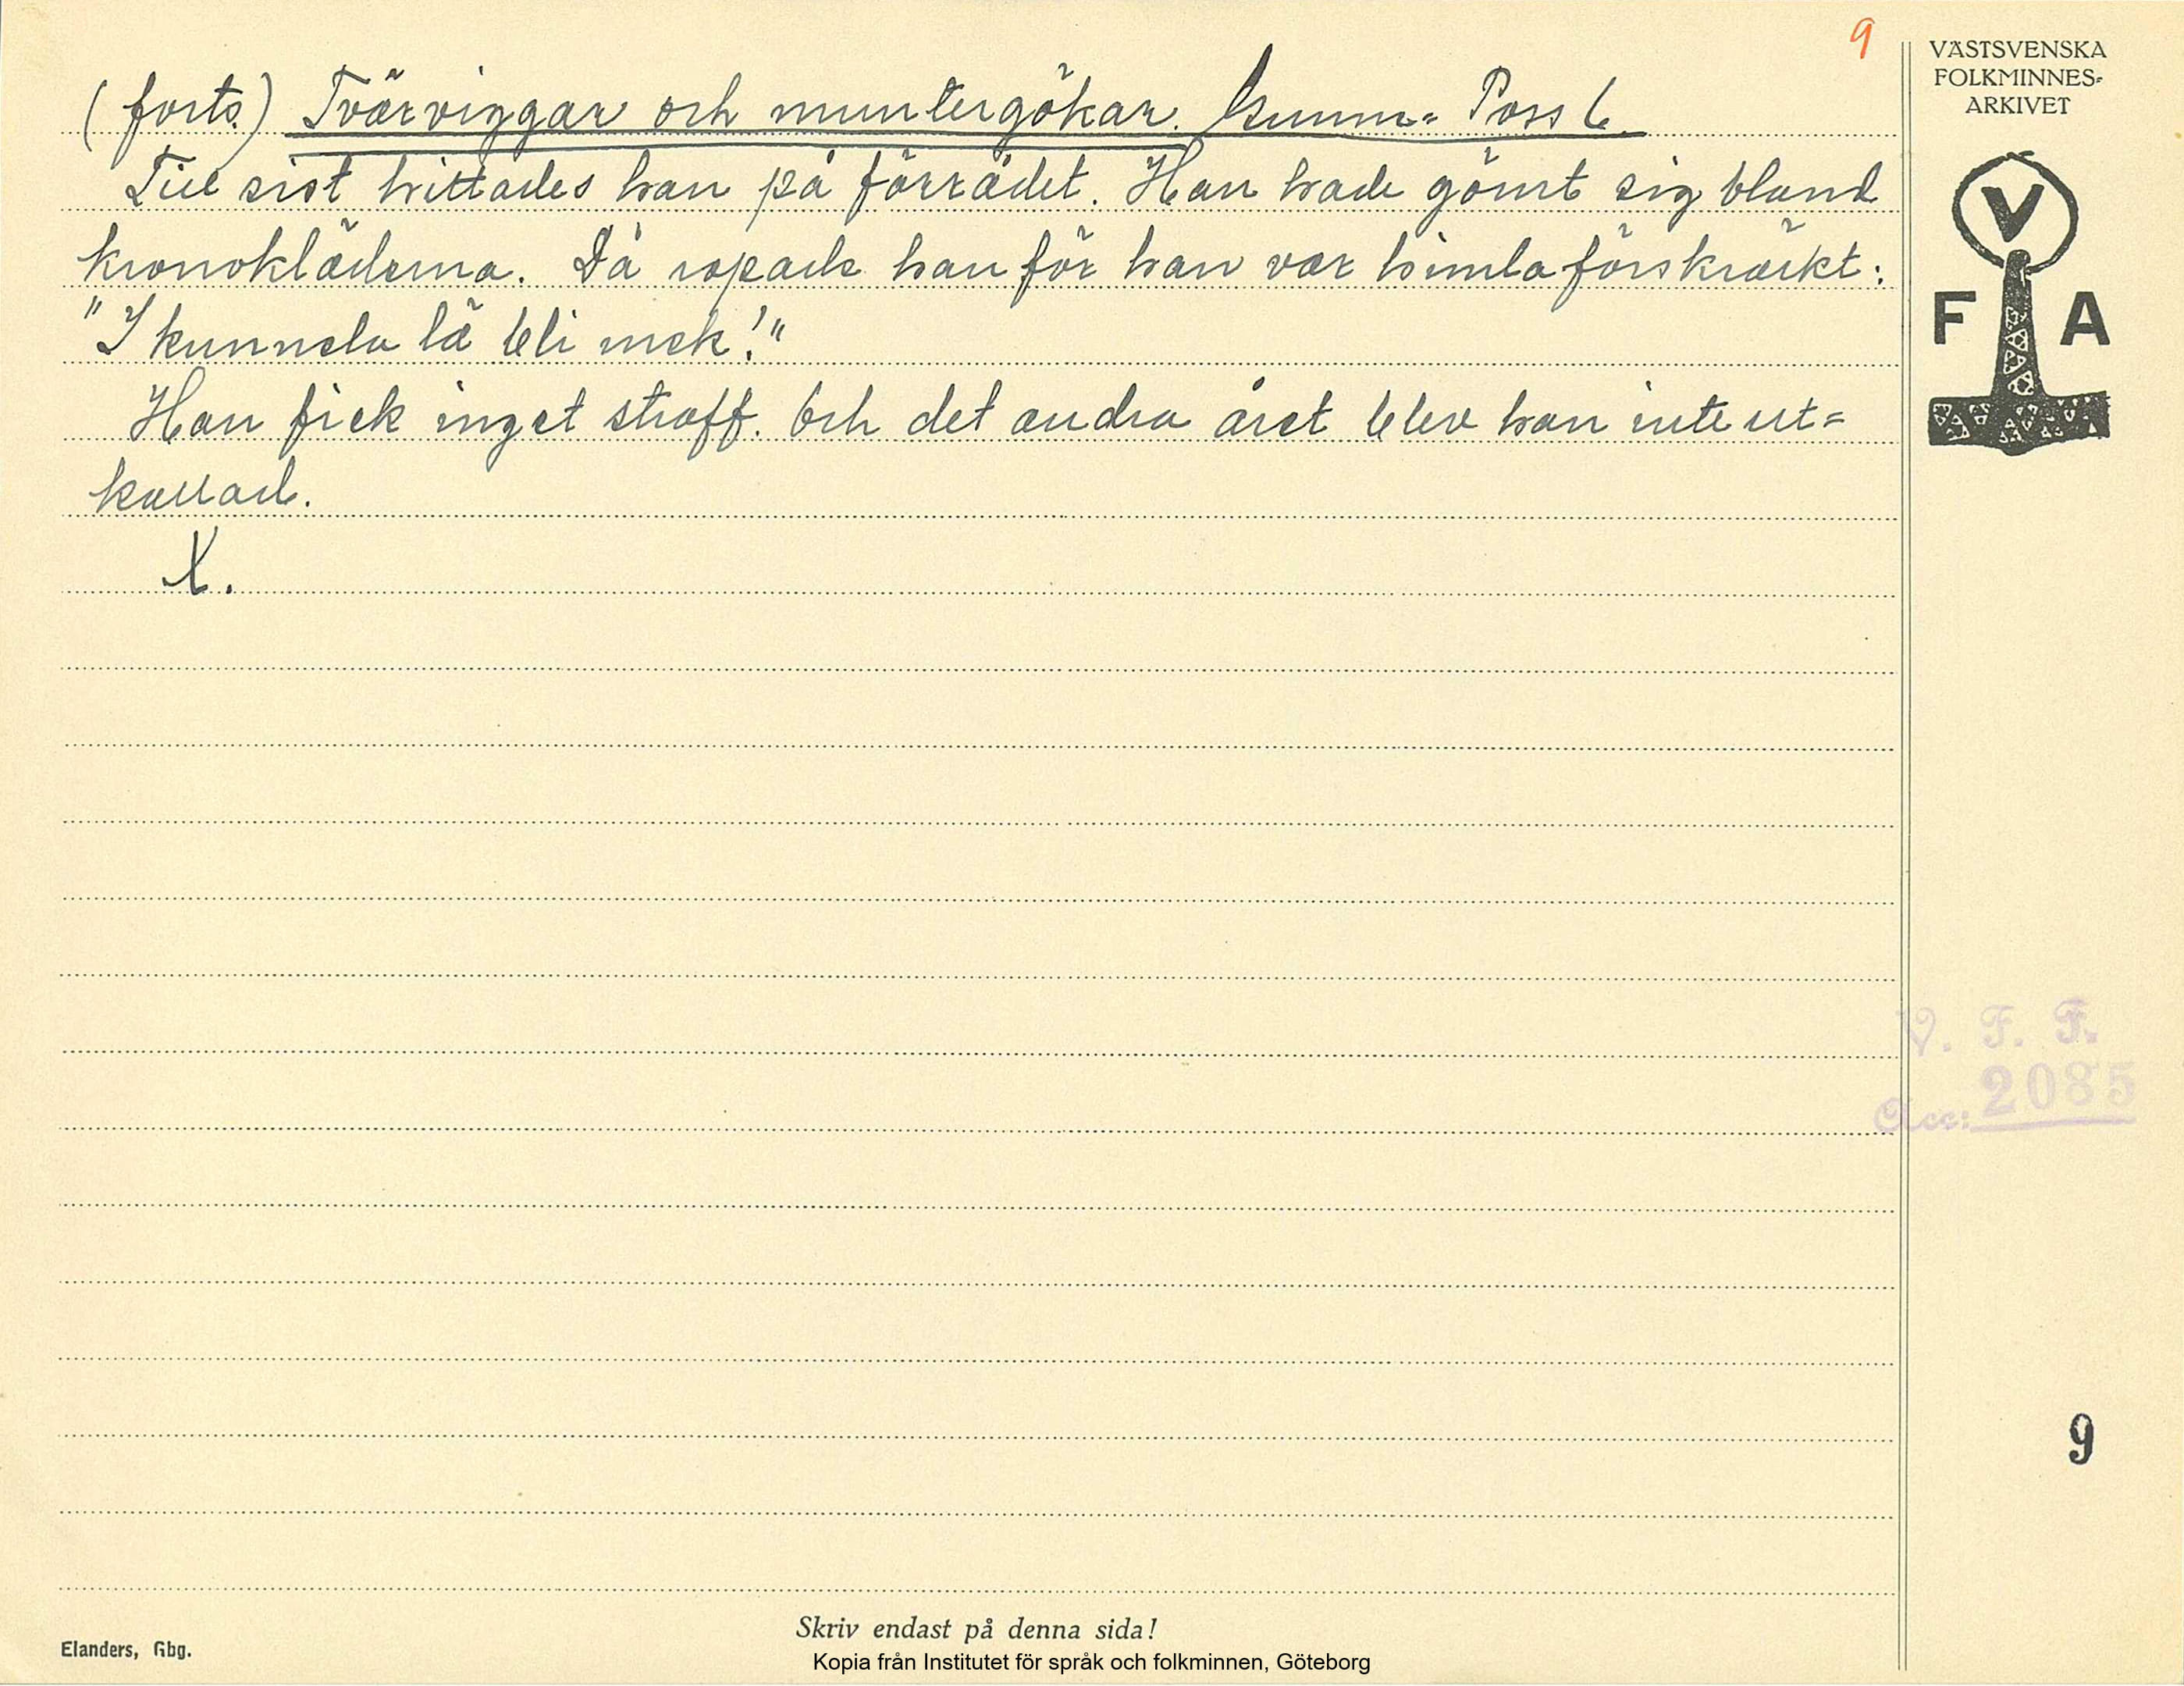 9
(forts.) Tvärviggar och muntergökar. Gunnar Poss 6.
Till sist hittades han på förrådet. Han hade gömt sig bland
kronokläderna. Då ropade han för han var himla förskräckt:
"I kunnela lä bli mek!"
Han fick inget straff. Och det andra året blev han inte ut=
kallad.
X.
VÄSTSVENSKA
FOLKMINNES-
ARKIVET
V
F A
V. F. F.
Acc: 2085
9
Skriv endast på denna sida!
Elanders, Gbg.
Kopia från Institutet för språk och folkminnen, Göteborg